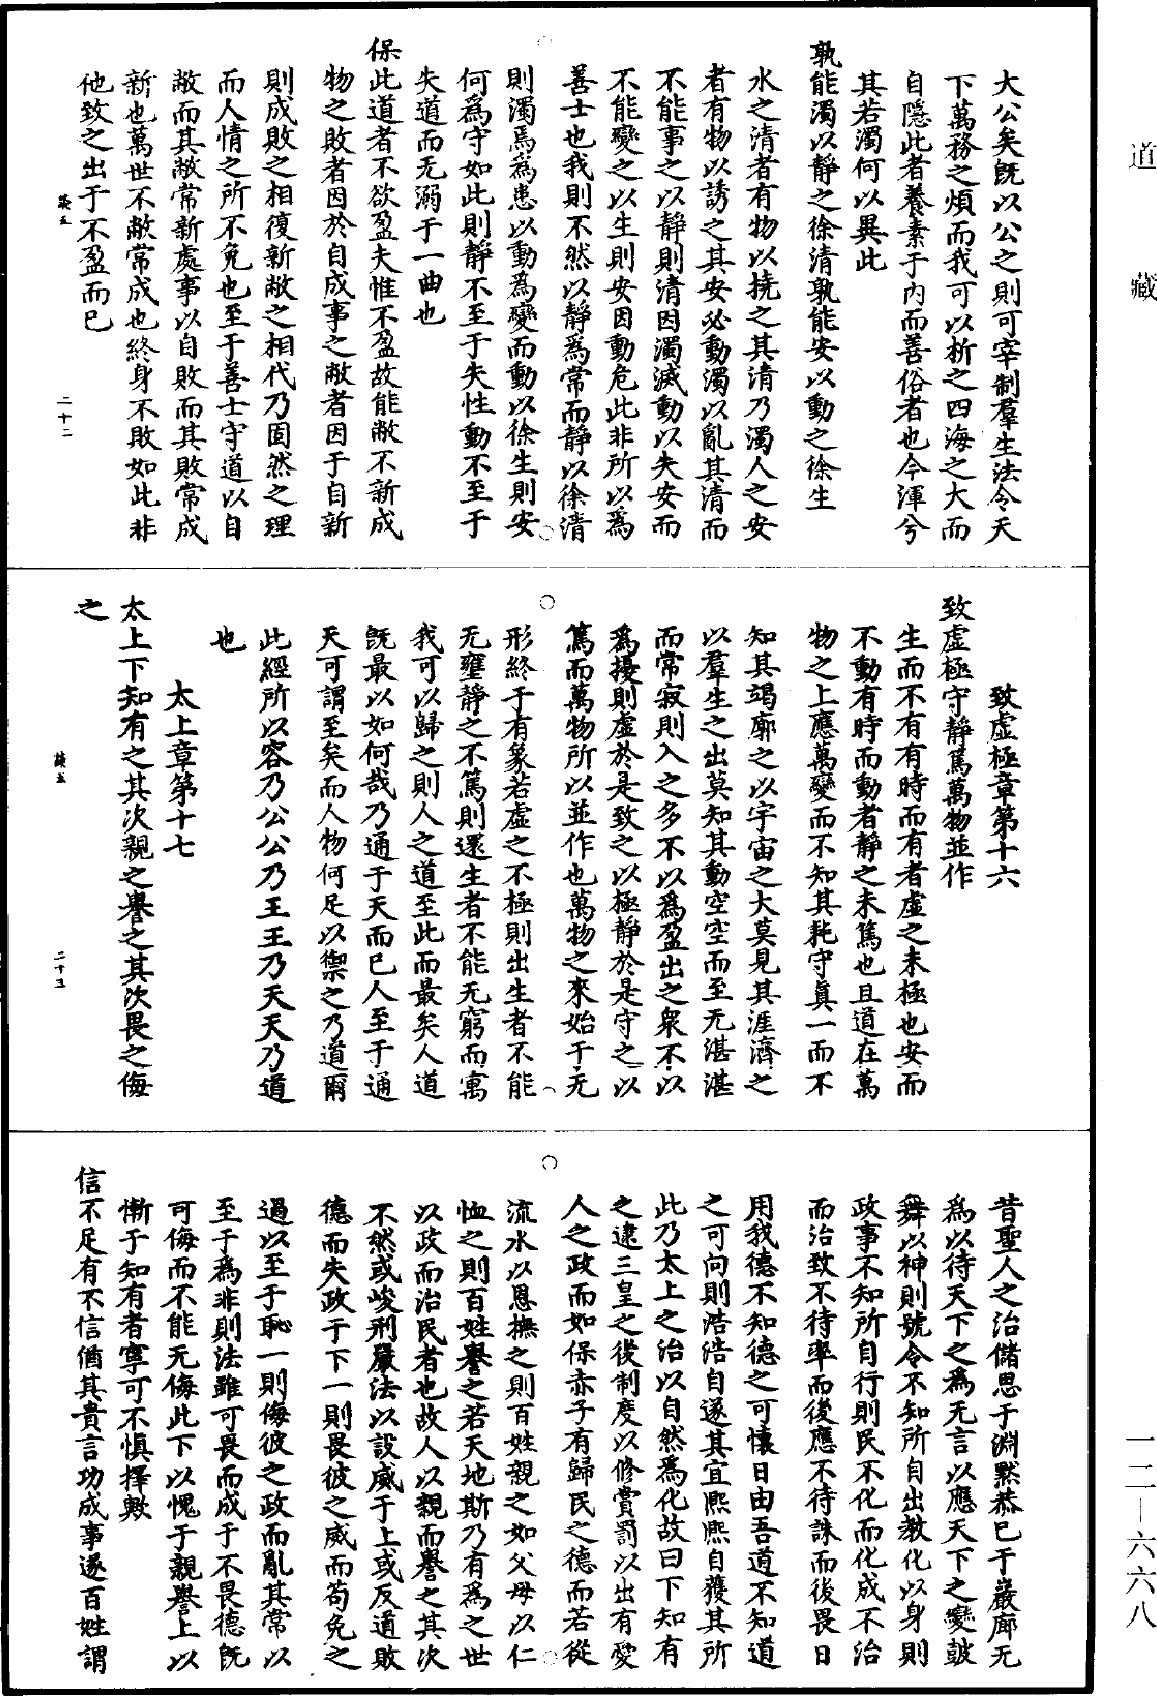 道藏
大公矣既以公之則可宰制羣生法令天
下萬務之煩而我可以析之四海之大而
自隱此者養素于內而善俗者也今渾兮
其若濁何以異此
孰能濁以靜之徐清孰能安以動之徐生
水之清者有物以撓之其清乃濁人之安
者有物以誘之其安必動濁以亂其清而
不能事之以靜則清因濁滅動以失安而
不能變之以生則安因動危此非所以爲
善士也我則不然以靜爲常而靜以徐清
則濁焉爲患以動爲變而動以徐生則安
何爲守如此則靜不至于失性動不至于
失道而无溺于一曲也
保此道者不欲盈夫惟不盈故能敝不新成
物之敗者因於自成事之敝者因于自新
則成敗之相復新敝之相代乃固然之理
而人情之所不免也至于善士守道以自
敝而其敝常新處事以自敗而其敗常成
新也萬世不敝常成也終身不敗如此非
他致之出于不盈而已
二十二
致虛極章第十六
致虛極守靜篤萬物並作
生而不有有時而有者虛之未極也安而
不動有時而動者靜之未篤也且道在萬
物之上應萬變而不知其耗守真一而不
知其竭廓之以宇宙之大莫見其涯濟之
以羣生之出莫知其動空空而至无湛湛
而常寂則入之多不以爲盈出之衆不以
爲擾則虛於是致之以極靜於是守之以
篤而萬物所以並作也萬物之來始于无
形終于有象若虛之不極則出生者不能
无壅靜之不篤則還生者不能无窮而寓
我可以歸之則人之道至此而最矣人道
既最以如何哉乃通于天而已人至于通
天可謂至矣而人物何足以禦之乃道爾
此經所以容乃公公乃王王乃天天乃道
也
太上章第十七
太上下知有之其次親之譽之其次畏之侮
之
二十三
昔聖人之治儲思于淵默恭已于巖廊无
爲以待天下之爲无言以應天下之變鼓
舞以神則號令不知所自出教化以身則
政事不知所自行則民不化而化成不治
而治致不待率而後應不待誅而後畏日
用我德不知德之可懷日由吾道不知道
之可向則浩浩自遂其宜熙熙自獲其所
此乃太上之治以自然爲化故曰下知有
之逮三皇之後制度以修賞罰以出有愛
人之政而如保赤子有歸民之德而若從
流水以恩撫之則百姓親之如父母以仁
恤之則百姓譽之若天地斯乃有爲之世
以政而治民者也故人以親而譽之其次
不然或峻刑嚴法以設威于上或反道敗
德而失政于下一則畏彼之威而苟免之
過以至于恥一則侮彼之政而亂其常以
至于爲非則法雖可畏而成于不畏德既
可侮而不能无侮此下以愧于親譽上以
慚于知有者寧可不慎擇歟
信不足有不信猶其貴言功成事遂百姓謂
一二—六六八